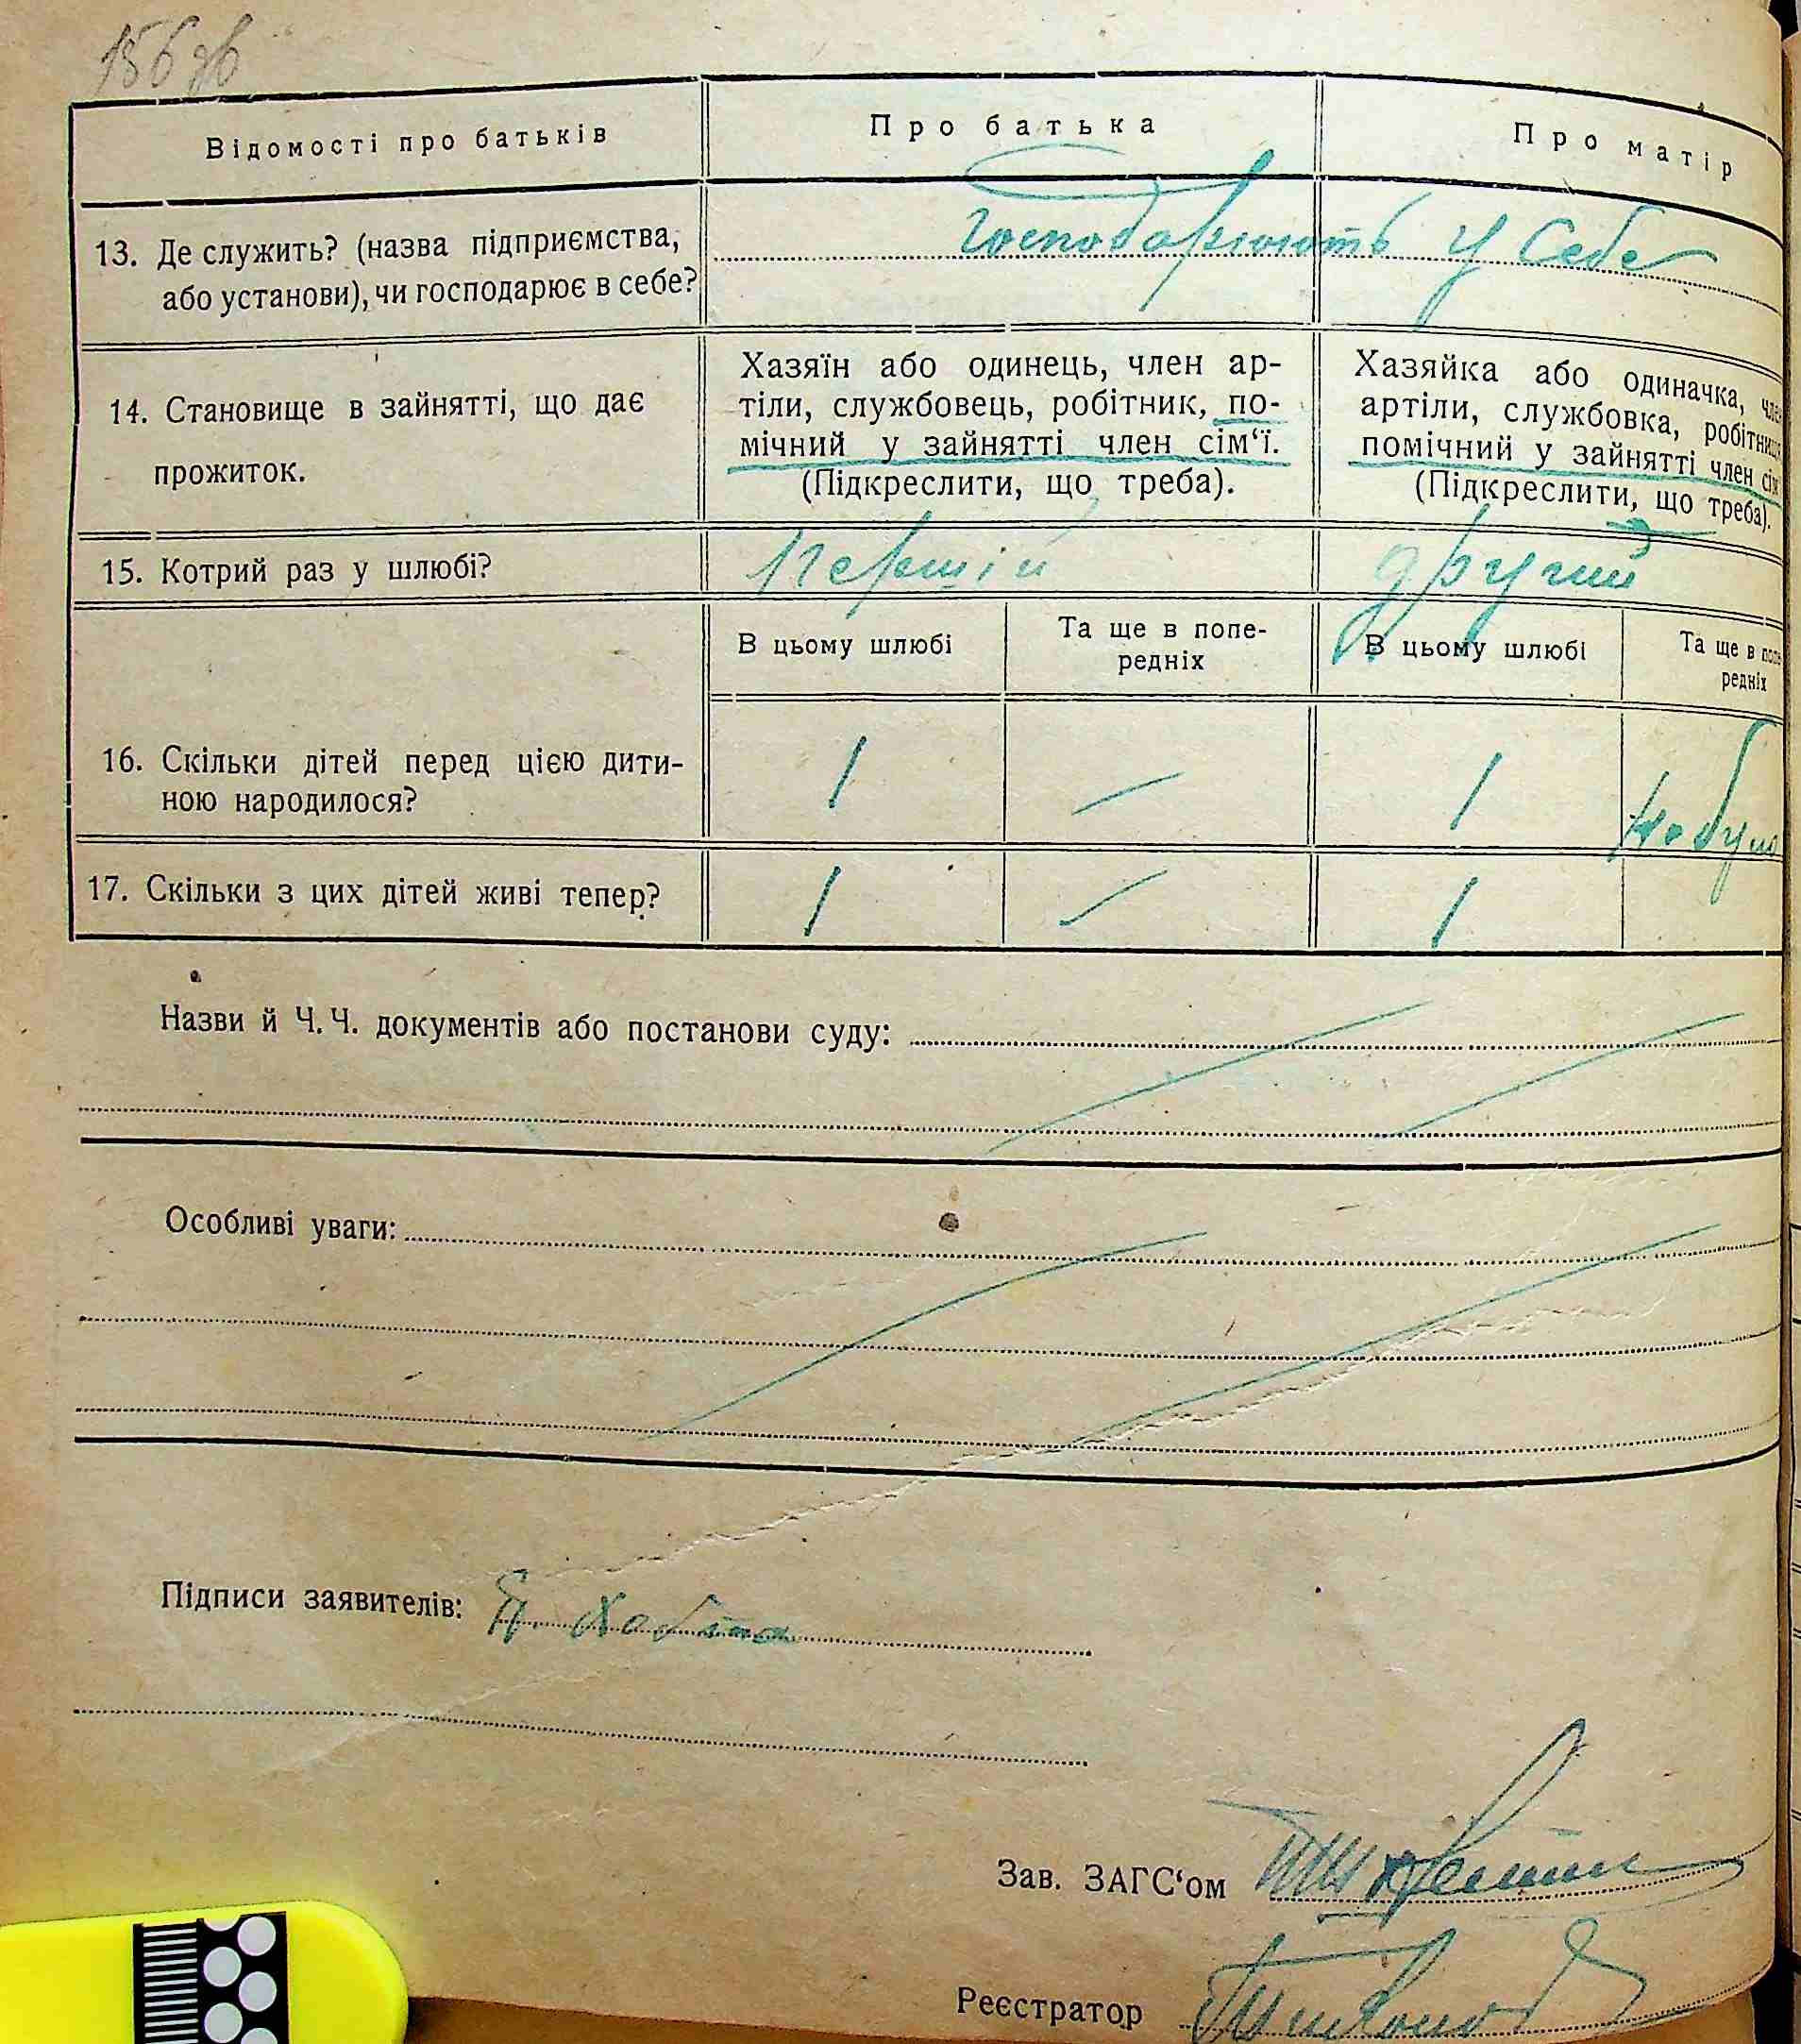 156 зв
Відомості про батьків
Про батька
Про матір
13. Де служить? (назва підприємства,
або установи), чи господарює в себе?
Господарюють у Себе
14. Становище в зайнятті, що дає
прожиток.
Хазяїн або одинець, член ар-
тіли, службовець, робітник, по-
мічний у зайнятті член сім‘ї.
(Підкреслити, що треба).
Хазяйка або одиначка, чле
артіли, службовка, робітниця
помічний у зайнятті член сім
(Підкреслити, що треба).
15. Котрий раз у шлюбі?
Першій
другий
В цьому шлюбі
Та ще в попе-
редніх
В цьому шлюбі
Та ще в попе
редніх
16. Скільки дітей перед цією дити-
ною народилося?
1
—
1
не було
17. Скільки з цих дітей живі тепер?
1
—
1
Назви й Ч. Ч. документів або постанови суду:
Особливі уваги:
Підписи заявителів:
Зав. ЗАГС‘ом
Реєстратор